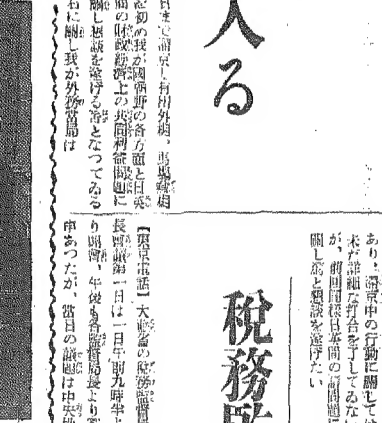 入る
日まで滯京し有田外相、馬場藏相
を初め我が國朝野の各方面と日英
間の財政經濟上の共同利益問題に
關し懇談を遂げる筈となつてゐる
右に關し我が外務當局は
あり、滯京中の行動に關しては
未だ詳細な打合を了してゐない
が、前回同樣日英間の諸問題
關し篤と懇談を遂げたい
税務監
【東京電話】大藏省の税務監督
長會議第一日は一日午前九時半よ
り開會、午後も各監督局長より
申あつたが、當日の議題は中央地